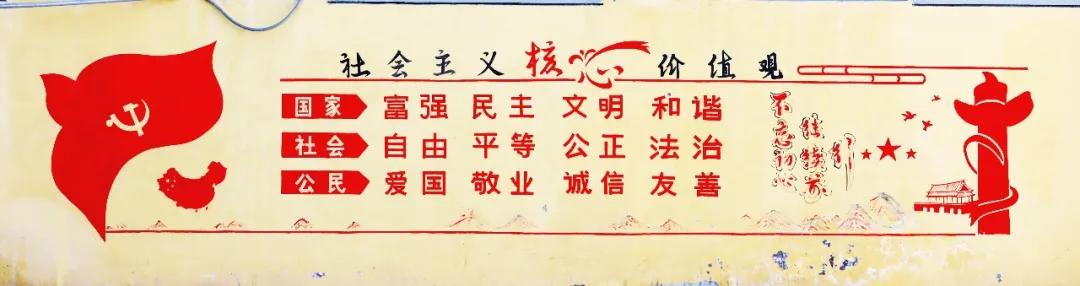 社会主义核心价值观
国家 富强 民主 文明 和谐
社会 自由 平等 公正 法治
公民 爱国 敬业 诚信 友善
不忘初心
继续前
行